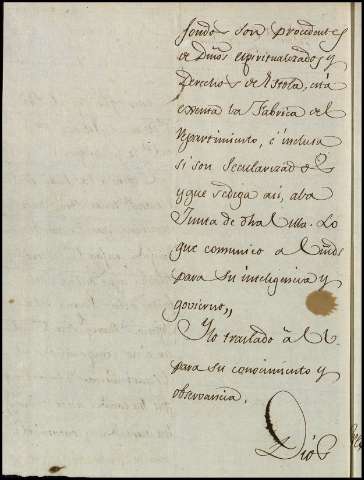 fondos son procedentes
de Dmos espiritualizados y
derechos de Estola, está
exenta la Fabrica del
repartimiento, é inclusa
si son Secularizados
y que se diga asi, a
Junta de Lo
que comunico a
para su inteligencia y
govierno,,
Y lo traslado à
para su conocimiento y
observancia.
Dio